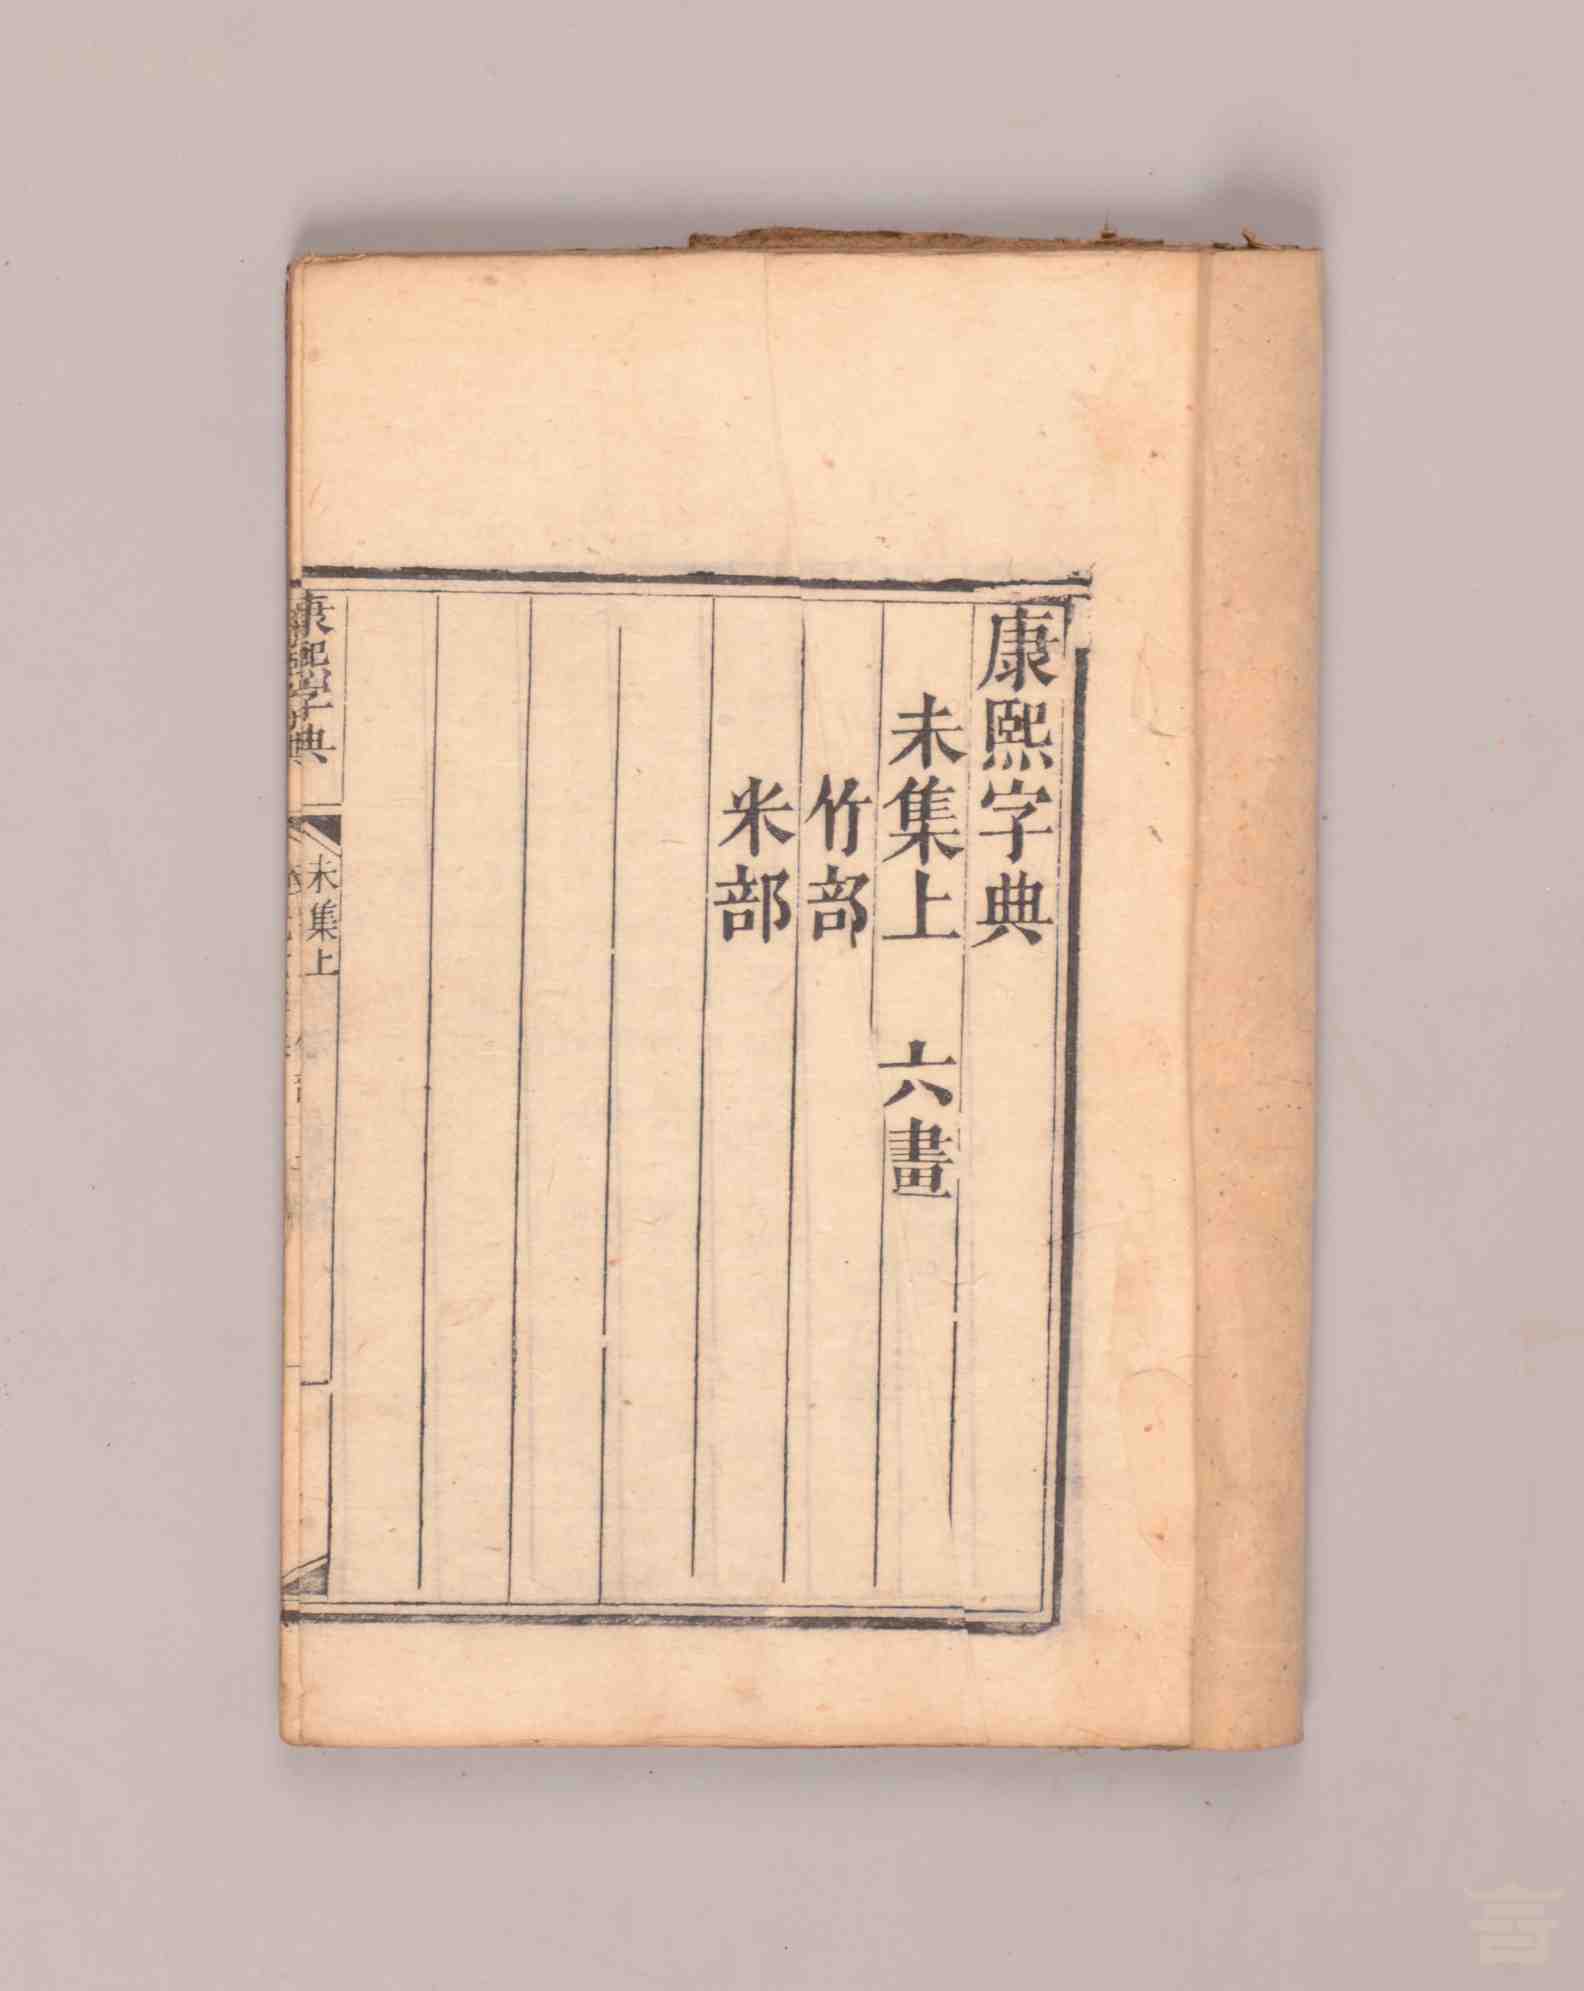 康熙字典
未集上　六畫
竹部
米部
康熙字典
未集上